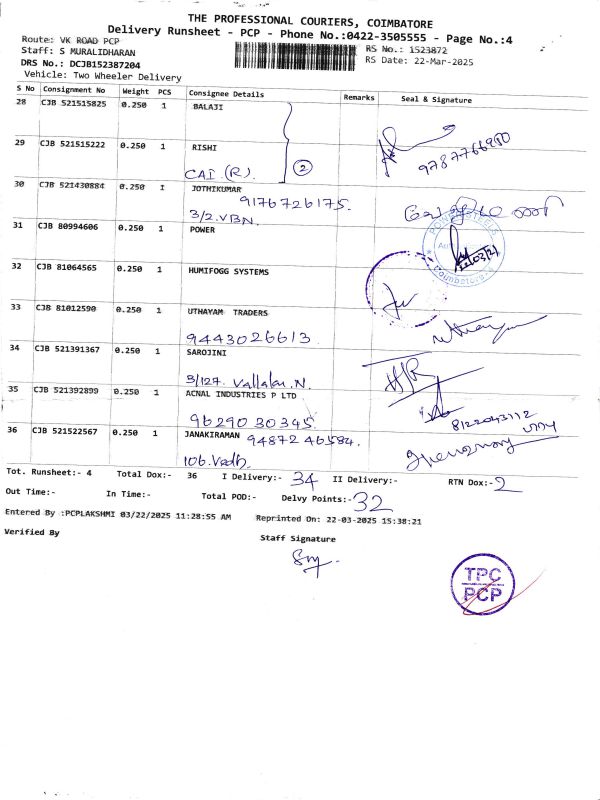 THE PROFESSIONAL COURIERS, COIMBATORE
Delivery Runsheet - PCP - Phone No.:0422-3505555 - Page No.:4
Route: VK ROAD PCP
RS No.: 1523872
Staff: S MURALIDHARAN
RS Date: 22-Mar-2025
DRS No.: DCJB152387204
Vehicle: Two Wheeler Delivery
S No Consignment No Weight PCS Consignee Details Remarks Seal & Signature
28 CJB 521515825 0.250 1 BALAJI
29 CJB 521515222 0.250 1 RISHI
CAI (R). 2
9787766980
30 CJB 521430884 0.250 1 JOTHIKUMAR
9176726175.
3/2.VBN.
31 CJB 80994606 0.250 1 POWER
32 CJB 81064565 0.250 1 HUMIFOGG SYSTEMS
33 CJB 81012590 0.250 1 UTHAYAM TRADERS
9443026613.
34 CJB 521391367 0.250 1 SAROJINI
3/127. Vallalar.N.
35 CJB 521392899 0.250 1 ACNAL INDUSTRIES P LTD
9629030345.
8122043112
36 CJB 521522567 0.250 1 JANAKIRAMAN 9487246584.
106.Vedh.
Tot. Runsheet:- 4 Total Dox:- 36 I Delivery:- 34 II Delivery:- RTN Dox:- 2
Out Time:- In Time:- Total POD:- Delvy Points:- 32
Entered By :PCPLAKSHMI 03/22/2025 11:28:55 AM Reprinted On: 22-03-2025 15:38:21
Verified By
Staff Signature
TPC
PCP